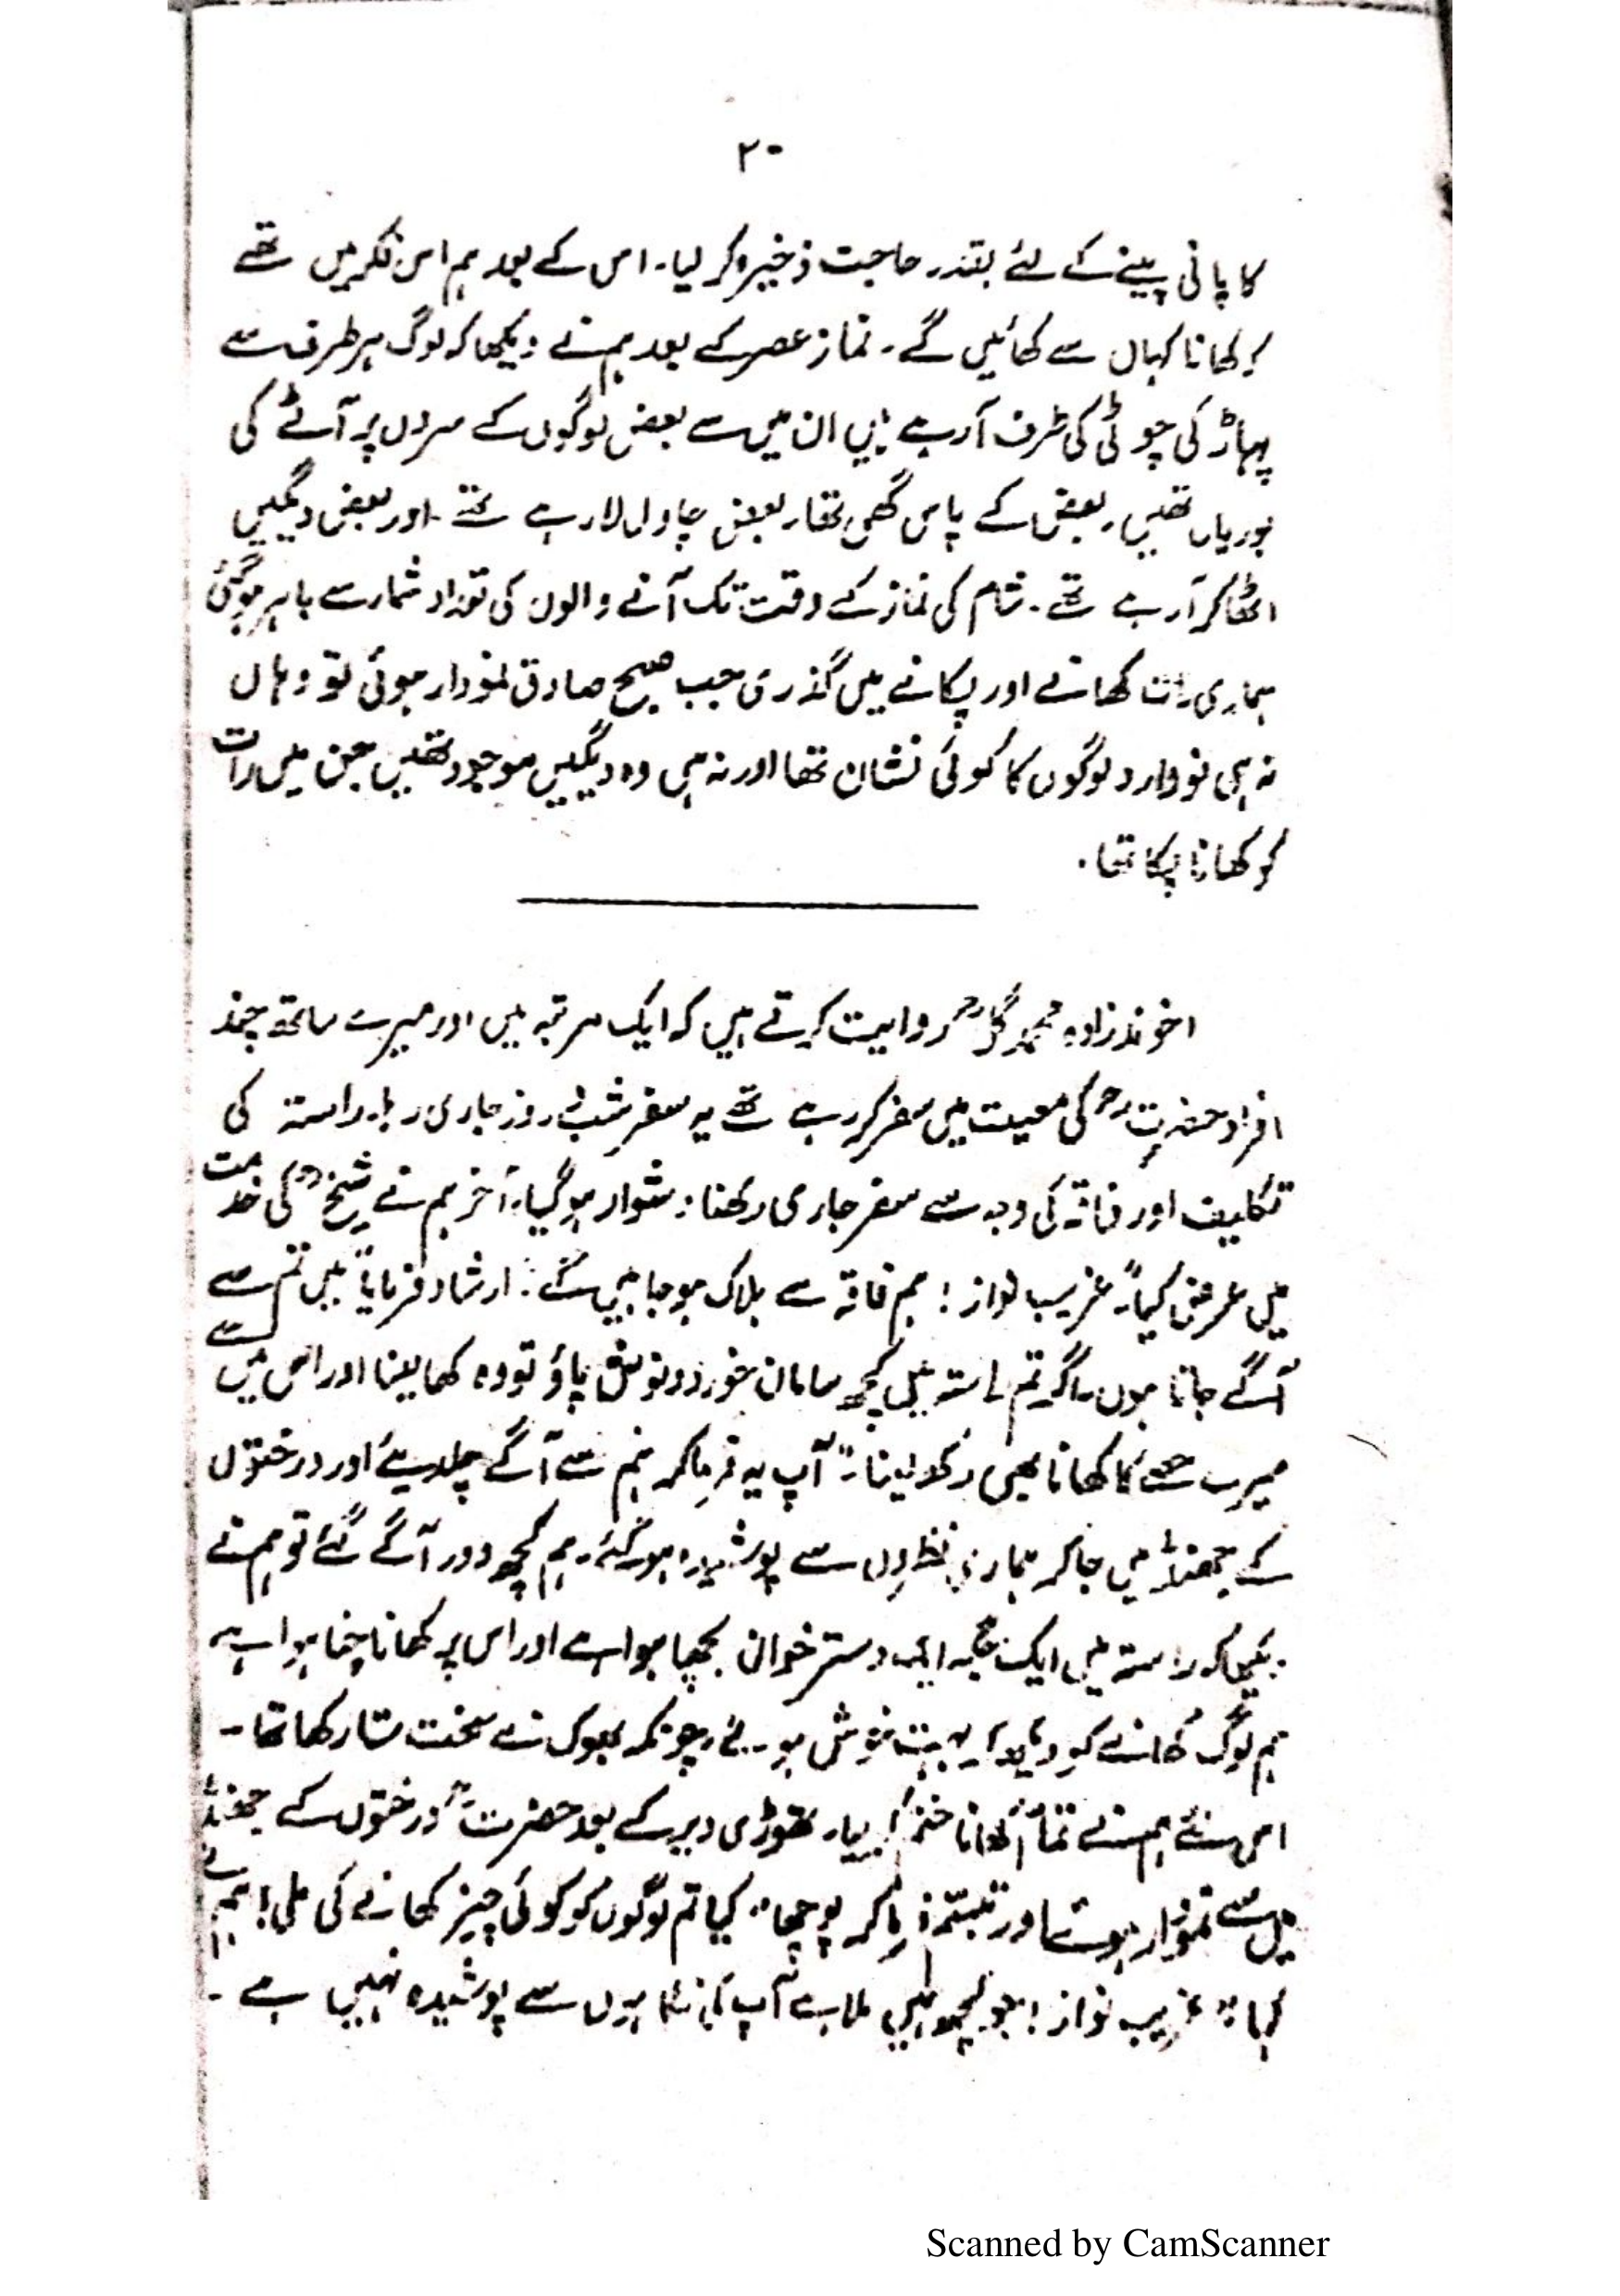 ۲۰
کا پانی پینے کے لئے بقدر حاجت ذخیرہ کر لیا۔ اس کے بعد ہم اس فکر میں تھے
کہ کھانا کہاں سے کھائیں گے۔ نماز عصر کے بعد ہم نے دیکھا کہ لوگ ہر طرف سے
پہاڑ کی چوٹی کی طرف آرہے ہیں ان میں سے بعض لوگوں کے سروں پر آٹے کی
بوریاں تھیں۔ بعض کے پاس گھی تھا۔ بعض چاول لارہے تھے۔ اور بعض دیگیں
اٹھا کر آرہے تھے۔ شام کی نماز کے وقت تک آنے والوں کی تعداد شمار سے باہر ہوگئی
ہماری رات کھانے اور پکانے میں گذری جب صبح صادق نمودار ہوئی تو وہاں
نہ ہی نووارد لوگوں کا کوئی نشان تھا اور نہ ہی وہ دیگیں موجود تھیں جن میں رات
کو کھانا پکا تھا۔
اخوندزادہ محمد گلؒ روایت کرتے ہیں کہ ایک مرتبہ میں اور میرے ساتھ چند
افراد حضرتؒ کی معیت میں سفر کر رہے تھے یہ سفر شب و روز جاری رہا۔ راستہ کی
تکلیف اور فاقہ کی وجہ سے سفر جاری رکھنا دشوار ہوگیا۔ آخر ہم نے شیخؒ کی خدمت
میں عرض کیا" غریب نواز! ہم فاقہ سے ہلاک ہوجائیں گے"۔ ارشاد فرمایا" میں تم سے
آگے جاتا ہوں۔ اگر تم راستہ میں کچھ سامان خوردونوش پاؤ تو وہ کھا لینا اور اس میں سے
میرے حصے کا کھانا بھی رکھ لینا۔" آپ یہ فرما کر ہم سے آگے چلدیئے اور درختوں
کے جھنڈ میں جا کر ہماری نظروں سے پوشیدہ ہو گئے۔ ہم کچھ دور آگے گئے تو ہم نے
دیکھا کہ راستہ میں ایک جگہ ایک دسترخوان بچھا ہوا ہے اور اس پر کھانا چنا ہوا ہے
ہم لوگ کھانے کو دیکھ کر بہت خوش ہوئے۔ چونکہ بھوک نے سخت ستا رکھا تھا۔
اس لئے ہم نے تمام کھانا ختم کر لیا۔ تھوڑی دیر کے بعد حضرتؒ درختوں کے جھنڈ
میں سے نمودار ہوئے اور تبسّم فرما کر پوچھا" کیا تم لوگوں کو کوئی چیز کھانے کی ملی! ہم نے
کہا" غریب نواز! جو کچھ ہمیں ملا ہے آپ کی نگاہوں سے پوشیدہ نہیں ہے۔
Scanned by CamScanner